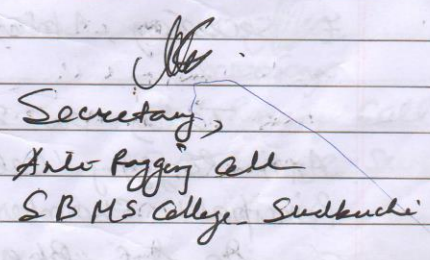 Secretary,
Anti-Ragging Cell
S B M S College Sualkuchi